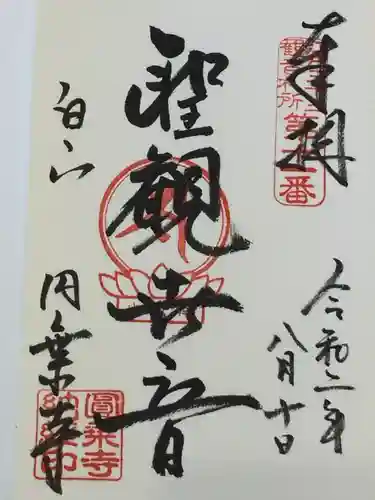 奉拝
令和二年
八月十日
聖観世音
白山
円乗寺
圓乗寺
納経印